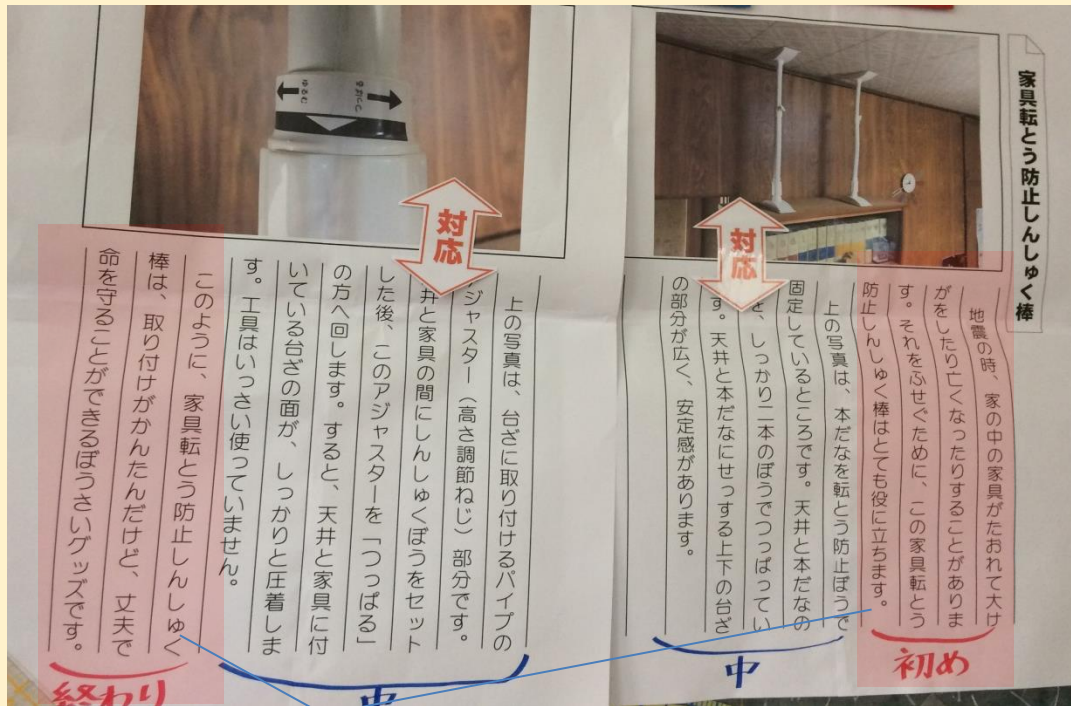 家具転とう防止しんしゅく棒
地震の時、家の中の家具がたおれて大け
がをしたり亡くなったりすることがありま
す。それをふせぐために、この家具転とう
防止しんしゅく棒はとても役に立ちます。
初め
対応
上の写真は、本だなを転とう防止ぼうで
固定しているところです。天井と本だなの
、しっかり二本のぼうでつっぱってい
す。天井と本だなにせっする上下の台ざ
の部分が広く、安定感があります。
中
ゆるむ
対応
上の写真は、台ざに取り付けるパイプの
ジャスター（高さ調節ねじ）部分です。
井と家具の間にしんしゅくぼうをセット
した後、このアジャスターを「つっぱる」
の方へ回します。すると、天井と家具に付
いている台ざの面が、しっかりと圧着しま
す。工具はいっさい使っていません。
中
このように、家具転とう防止しんしゅく
棒は、取り付けがかんたんだけど、丈夫で
命を守ることができるぼうさいグッズです。
終わり